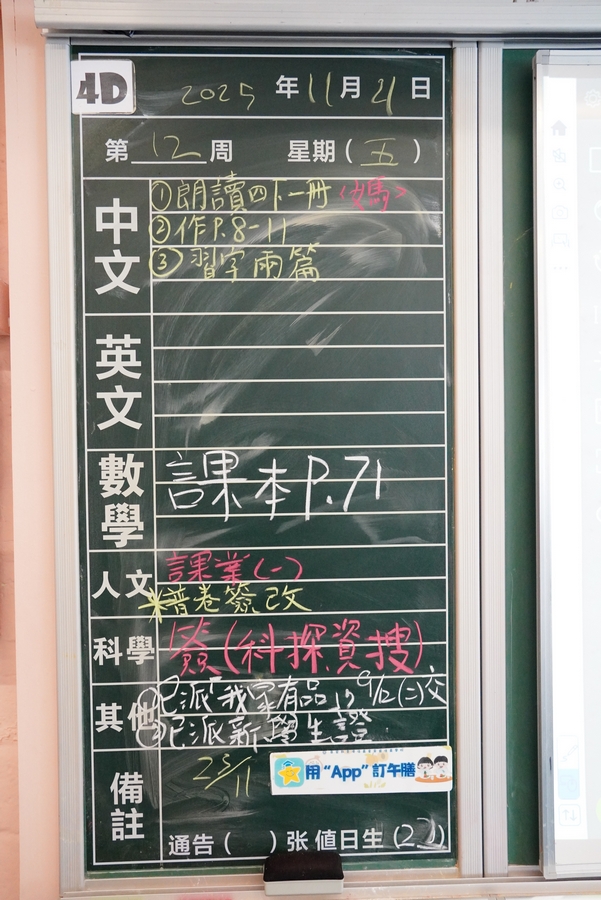 4D
2025 年 11 月 21 日
第 12 周 星期 ( 五 )
中文
① 朗讀四下一冊
② 作 P.8-11
③ 習字兩篇
英文
數學
課本 P.71
人文
課業(一)
*普卷簽改
科學
簽(科探資搜)
其他
①已派"我家有品" 9/12(二)交
②已派新學生證
備註
25/11
用 "App" 訂午膳
通告 ( ) 张 值日生 (22)